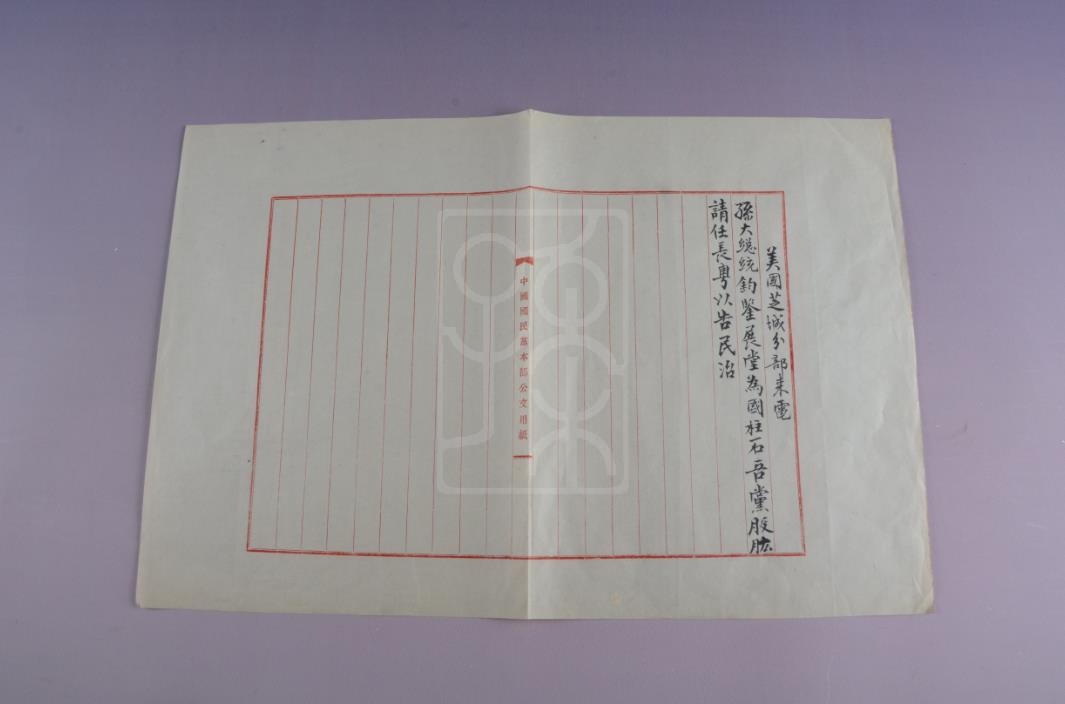 美國芝城分部來電
孫大總統鈞鑒展堂為國柱石吾黨股肱
請任長粵以告民治
中國國民黨本部公文用紙